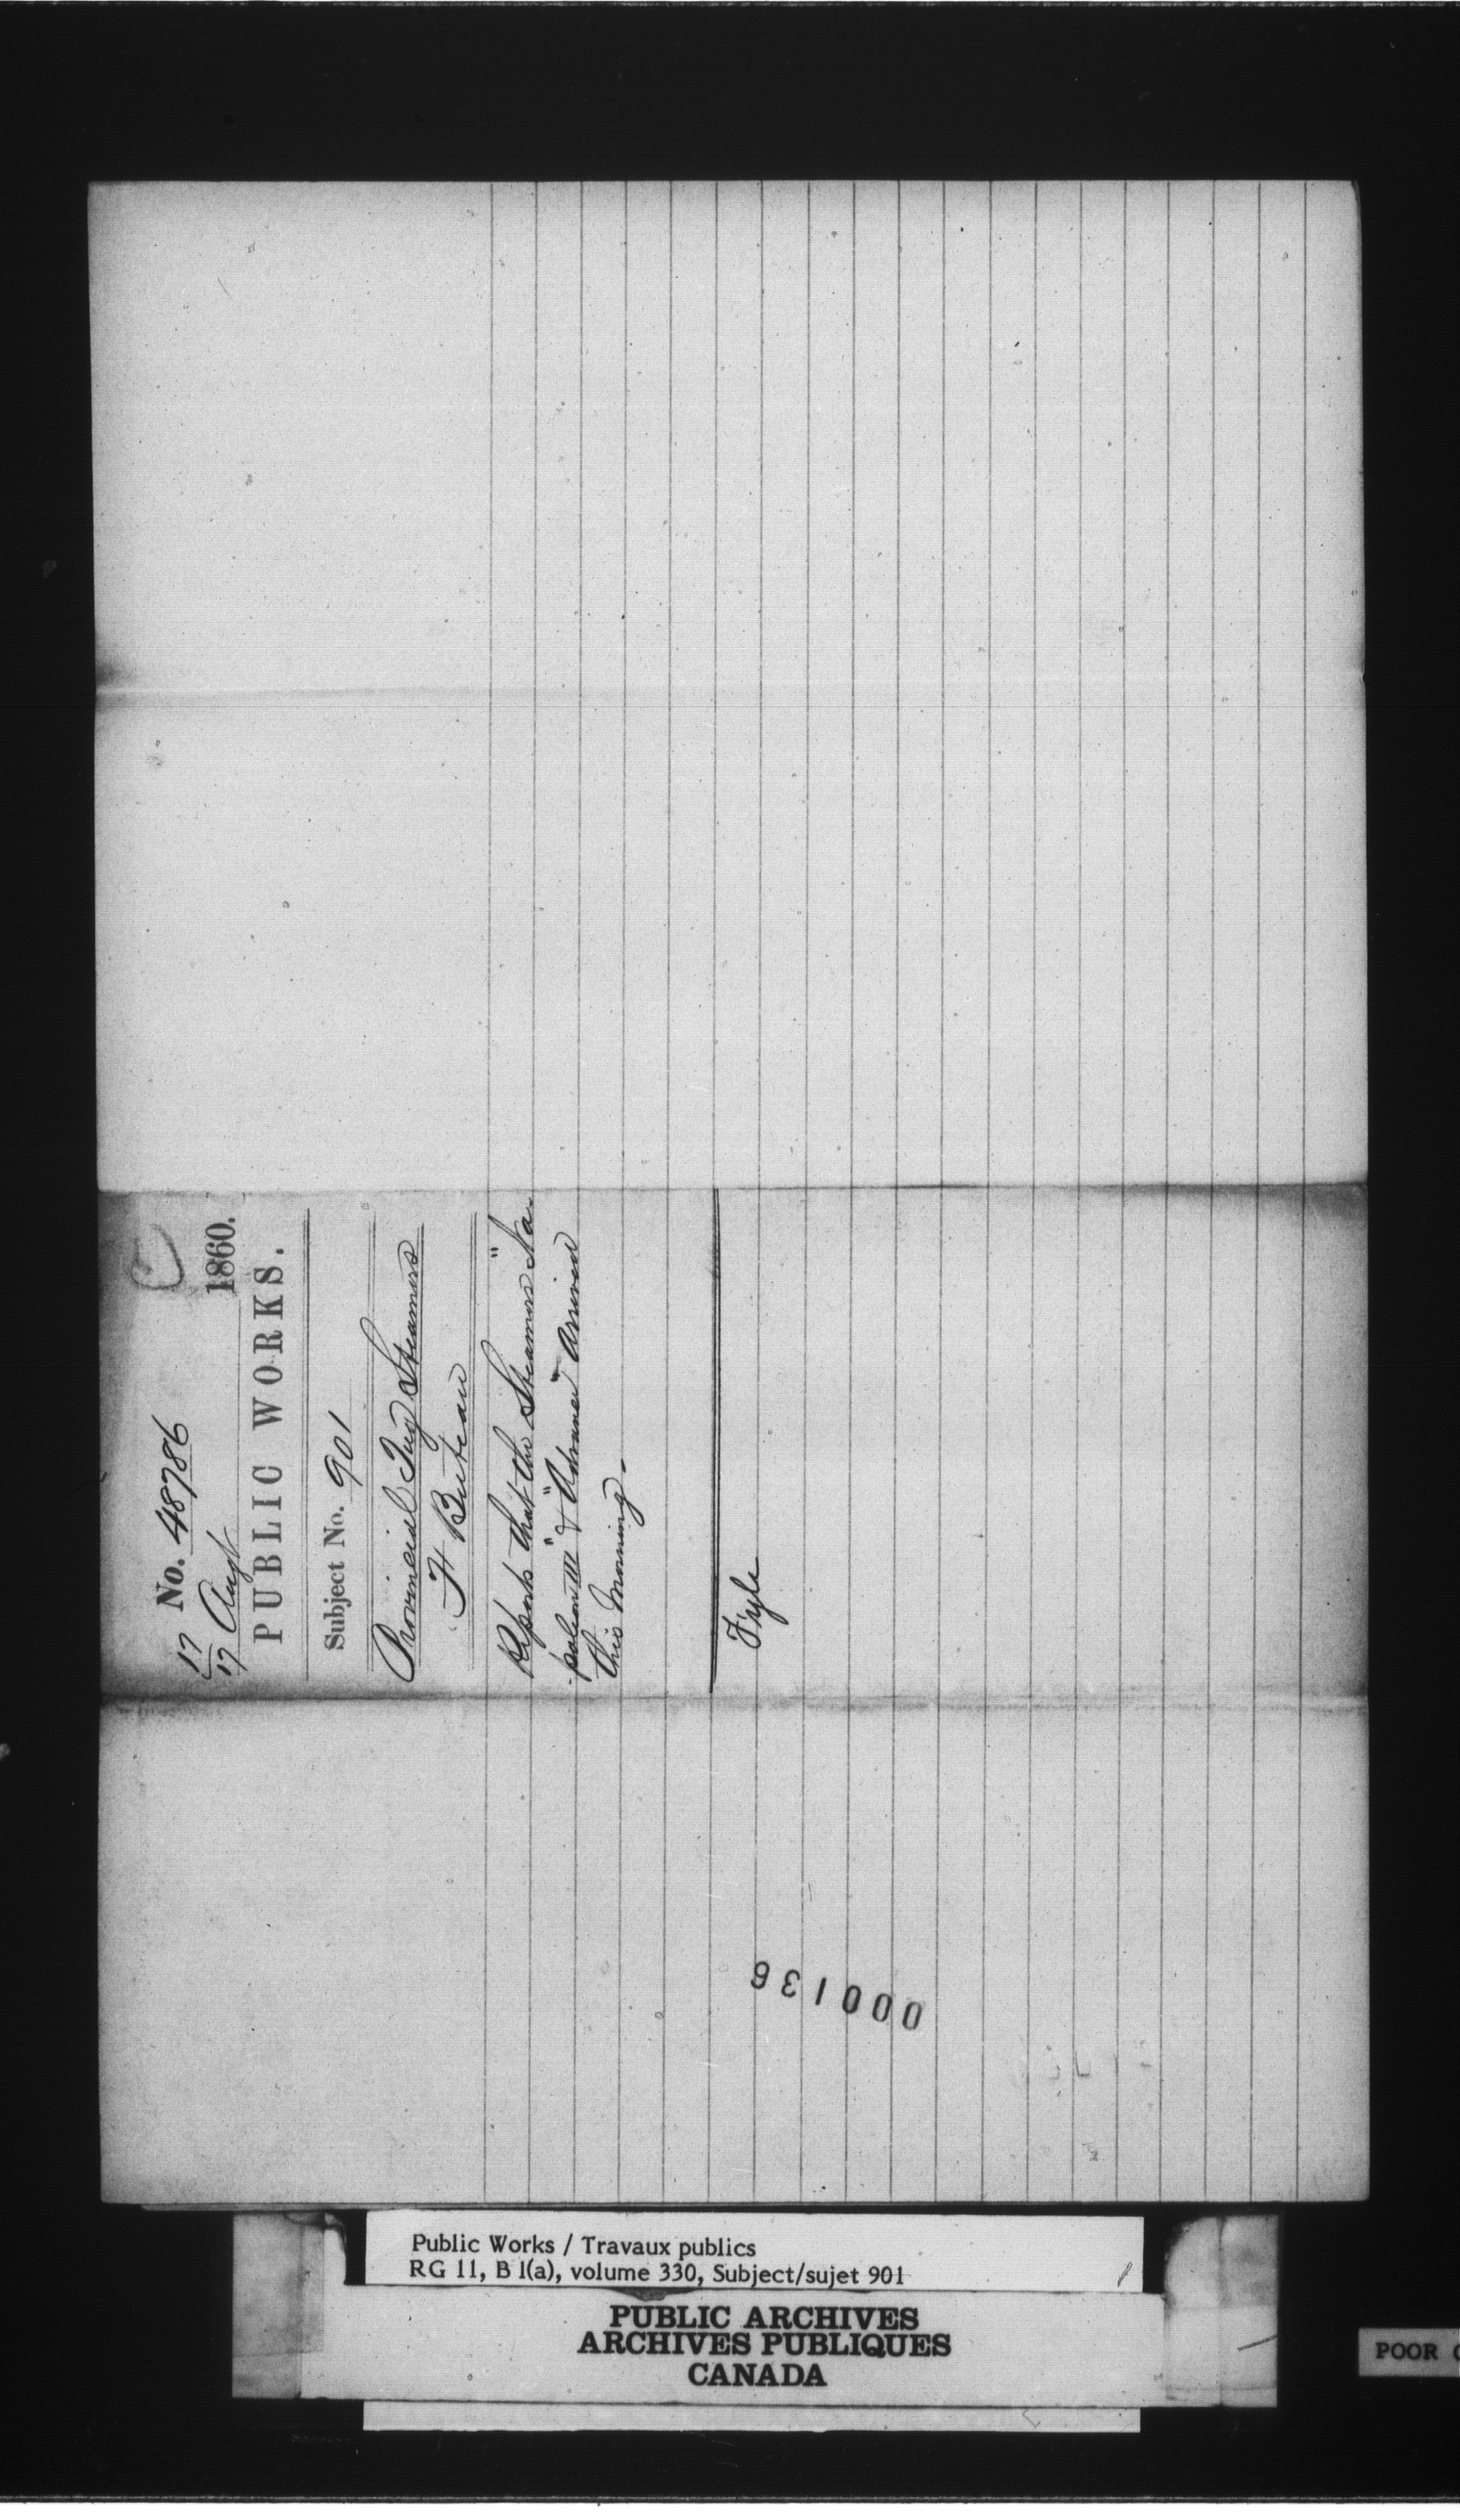 No. 48786
17
17 Augt 1860.
PUBLIC WORKS.
Subject No. 901
Provincial Tug Steamers
F Buteau
Reports that the Steamers "Na-
poleon III" & "Advance" arrived
this morning.
Fyle
000136
Public Works / Travaux publics
RG 11, B 1(a), volume 330, Subject/sujet 901
PUBLIC ARCHIVES
ARCHIVES PUBLIQUES
CANADA
POOR